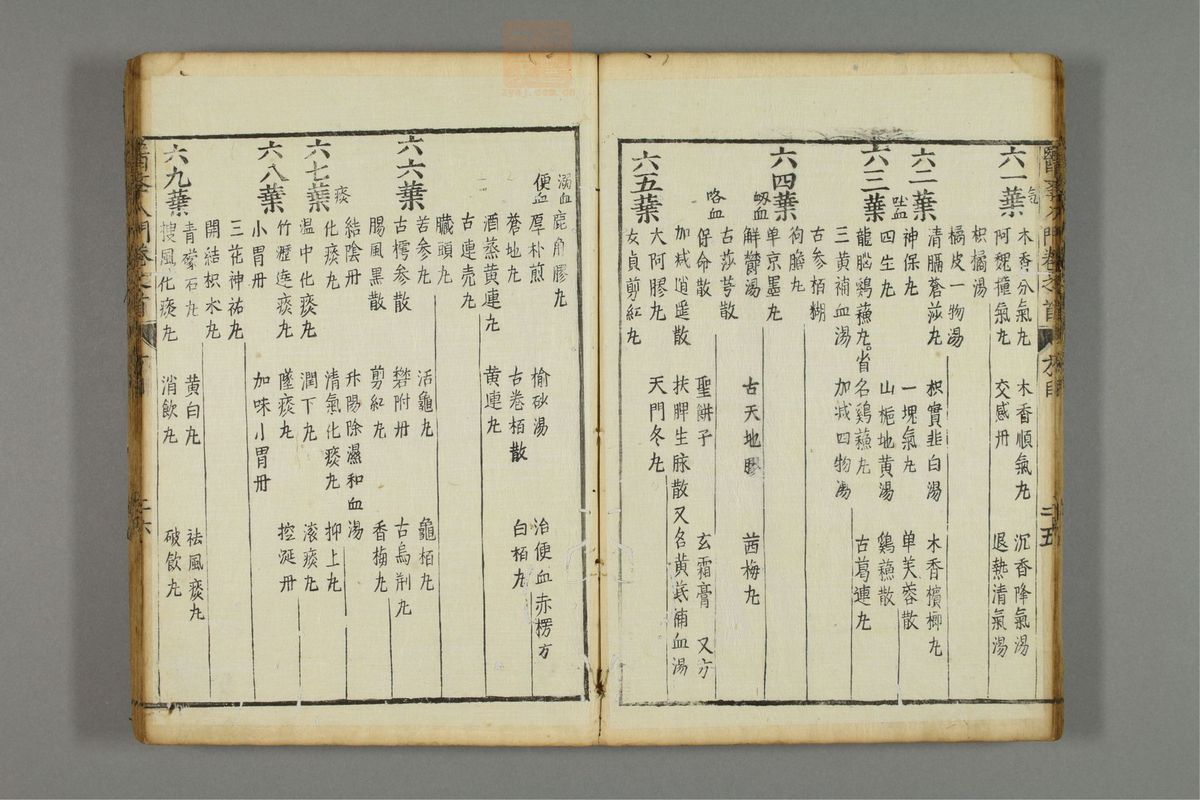 六一葉
氣
木香分氣丸 木香順氣丸 沉香降氣湯
阿魏撞氣丸 交感丹 退熱清氣湯
枳橘湯
橘皮一物湯
六二葉
清膈蒼莎丸 枳實韭白湯 木香檳榔丸
神保丸 一塊氣丸 单芙蓉散
四生丸 山梔地黄湯 鷄蘓散
六三葉
龍腦鷄蘓丸 省名鷄蘓丸 古葛連丸
三黄補血湯 加减四物湯
古参栢糊
狗膽丸
六四葉
单京墨丸
衂血
解鬱湯 古天地膠 茜梅丸
古莎芎散
咯血
保命散 聖餅子 玄霜膏 又方
加减逍遥散 扶脾生脉散又名黄芪補血湯
六五葉
大阿膠丸 天門冬丸
女貞剪紅丸
溺血
鹿角膠丸
便血
厚朴煎 榆砂湯 治便血赤楞方
蒼地丸 古卷栢散 白栢丸
酒蒸黄連丸 黄連丸
古連壳丸
臟頭丸
六六葉
苦参丸 活龜丸 龜栢丸
古樗参散 礬附丹 古烏荆丸
腸風黑散 剪紅丸 香梅丸
結陰丹 升陽除濕和血湯
痰
化痰丸 清氣化痰丸 抑上丸
六七葉
温中化痰丸 潤下丸 滚痰丸
竹瀝逹痰丸 墜痰丸 控涎丹
六八葉
小胃丹 加味小胃丹
三花神祐丸
開結枳术丸
青礞石丸 黄白丸 祛風痰丸
六九葉
搜風化痰丸 消飲丸 破飲丸